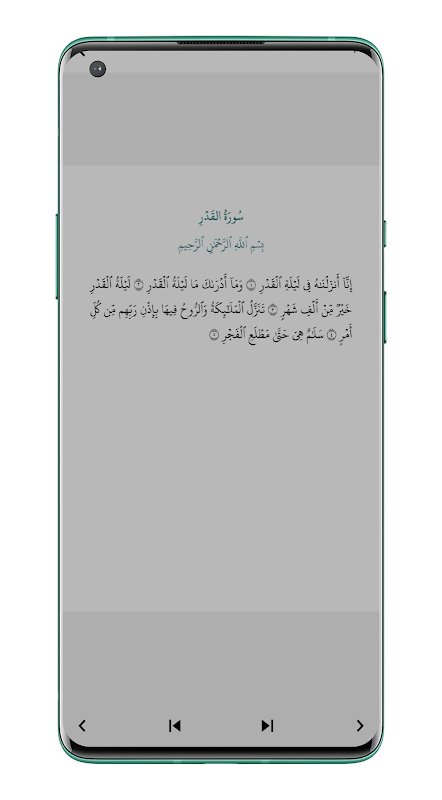 سُورَةُ القَدْرِ
بِسْمِ ٱللَّهِ ٱلرَّحْمَٰنِ ٱلرَّحِيمِ
إِنَّآ أَنزَلْنَٰهُ فِى لَيْلَةِ ٱلْقَدْرِ ١ وَمَآ أَدْرَىٰكَ مَا لَيْلَةُ ٱلْقَدْرِ ٢ لَيْلَةُ ٱلْقَدْرِ
خَيْرٌ مِّنْ أَلْفِ شَهْرٍ ٣ تَنَزَّلُ ٱلْمَلَٰٓئِكَةُ وَٱلرُّوحُ فِيهَا بِإِذْنِ رَبِّهِم مِّن كُلِّ
أَمْرٍ ٤ سَلَٰمٌ هِىَ حَتَّىٰ مَطْلَعِ ٱلْفَجْرِ ٥